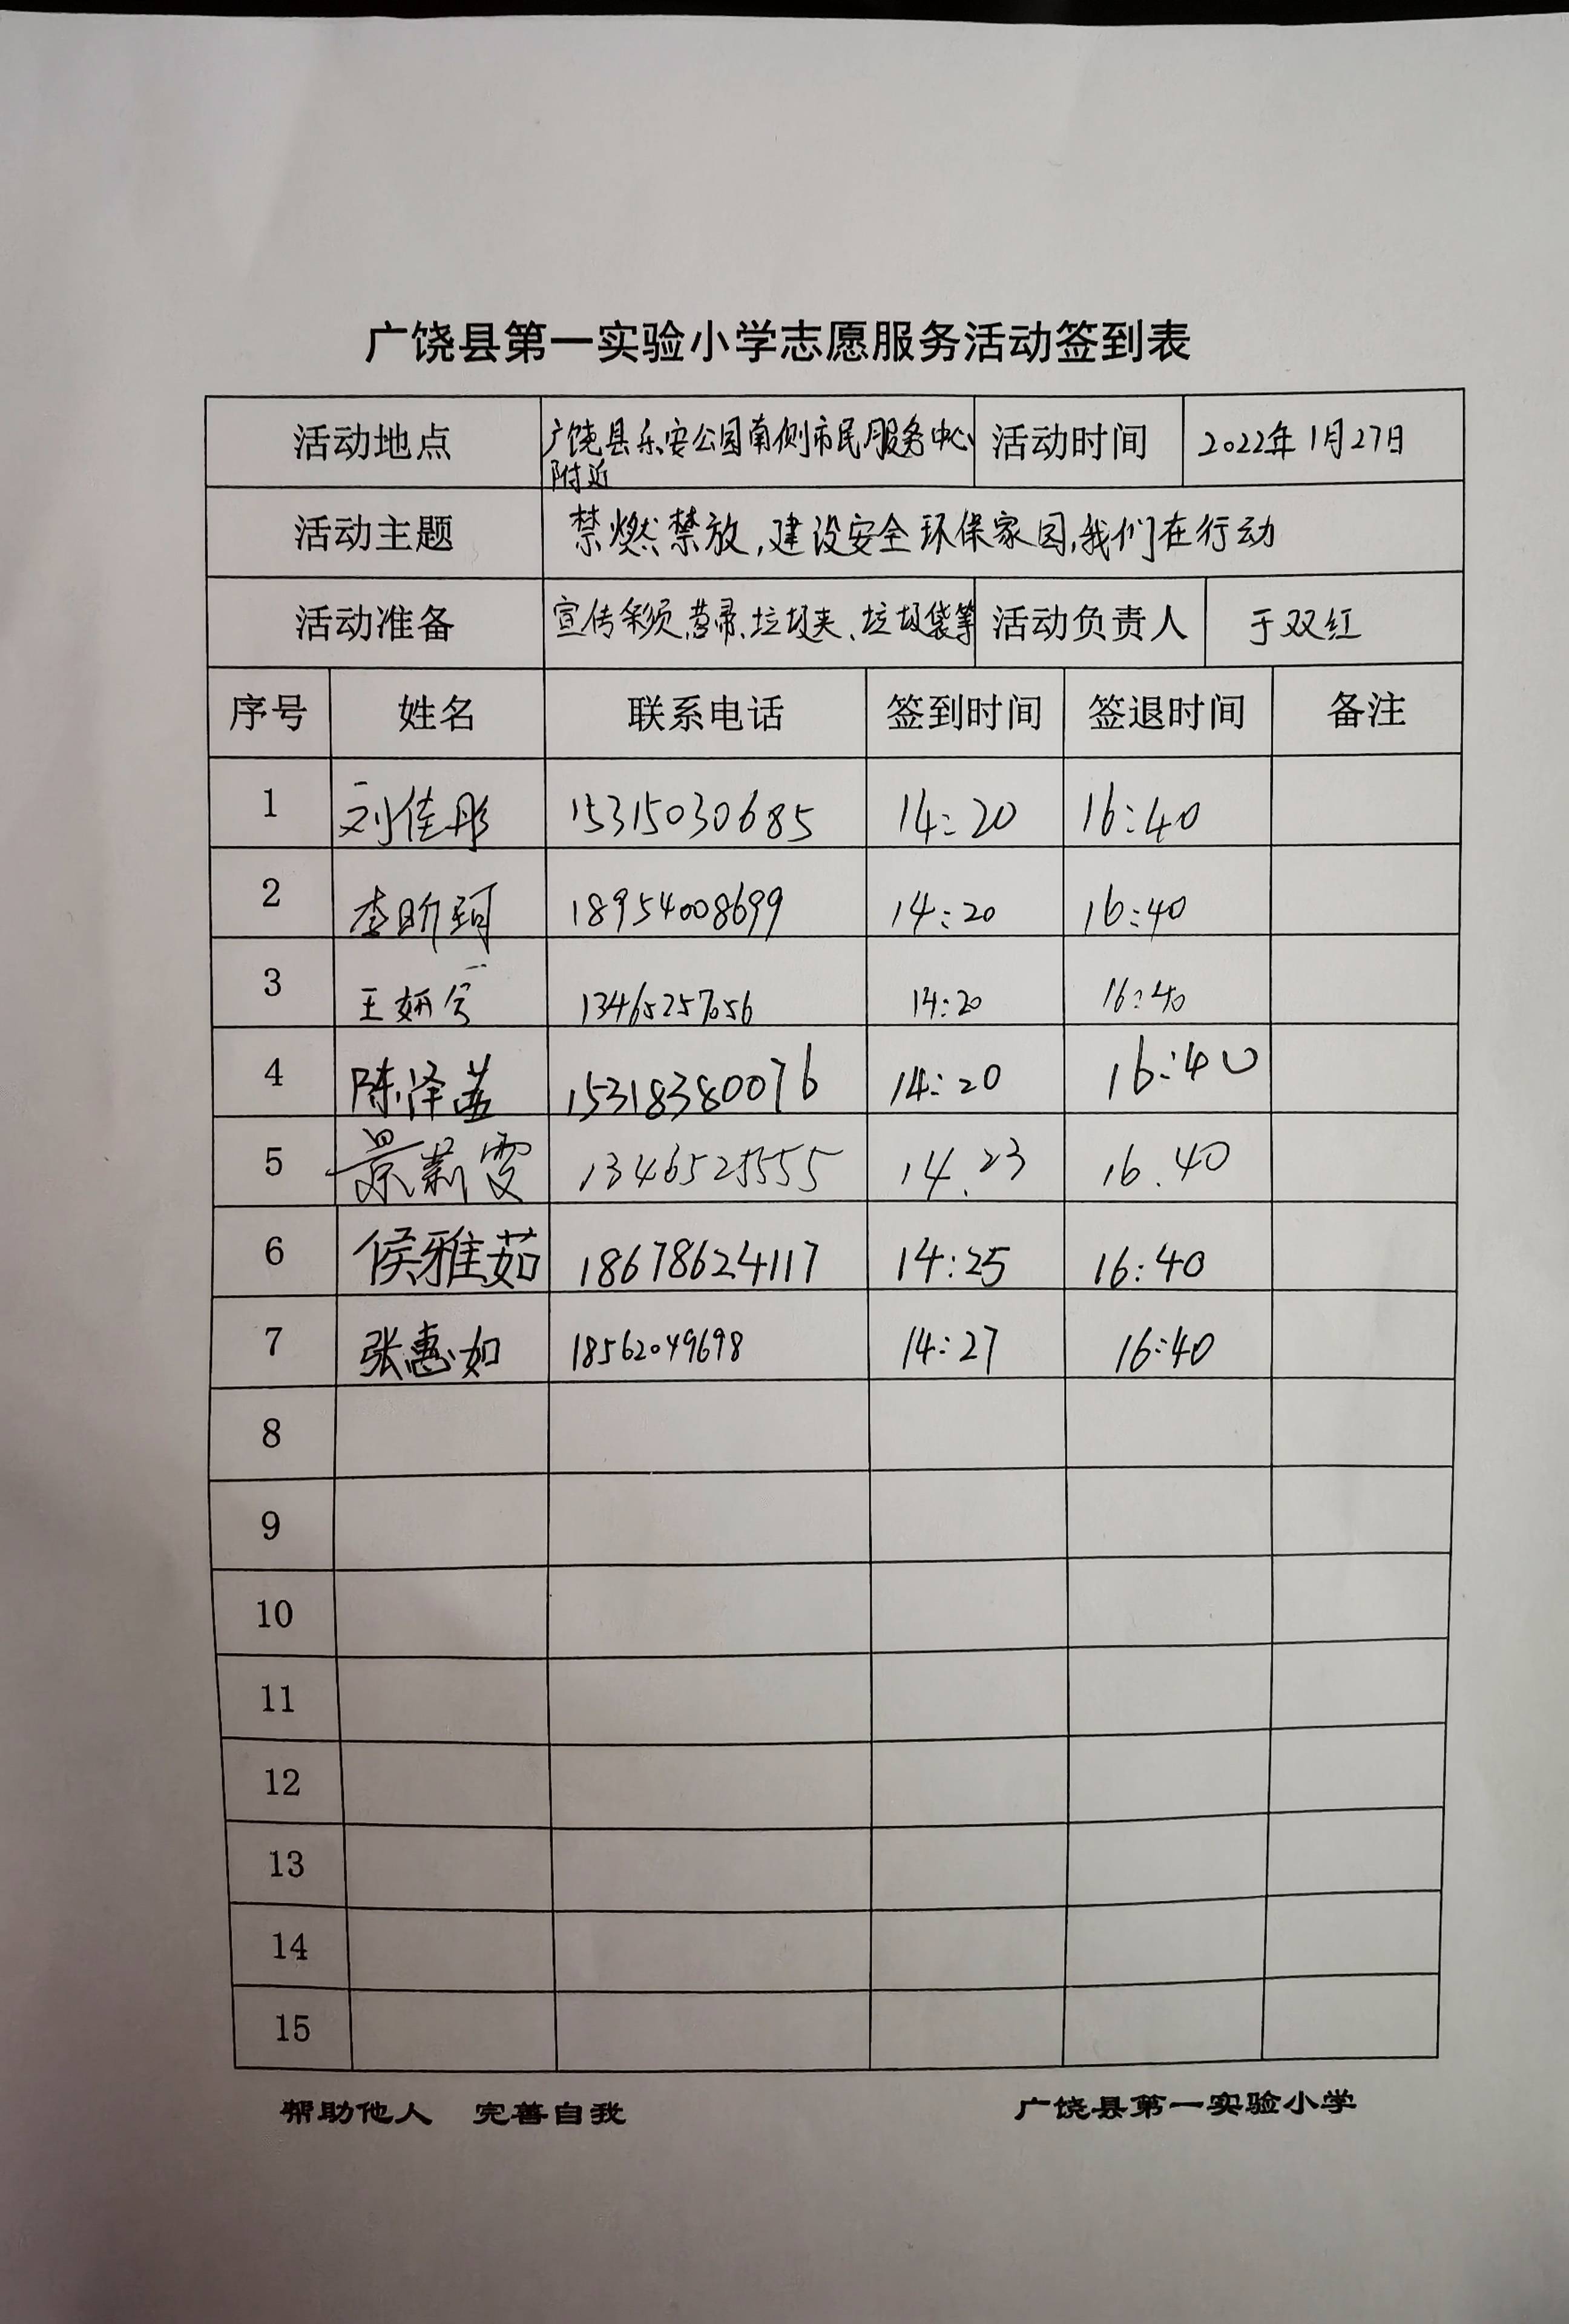 广饶县第一实验小学志愿服务活动签到表
活动地点 广饶县乐安公园南侧市民服务中心附近 活动时间 2022年1月27日
活动主题 禁燃禁放,建设安全环保家园,我们在行动
活动准备 宣传条页、苕帚、垃圾夹、垃圾袋等 活动负责人 于双红
序号 姓名 联系电话 签到时间 签退时间 备注
1 刘佳彤 15315030685 14:20 16:40
2 李昕珂 18954008699 14:20 16:40
3 王妍 13465257056 14:20 16:40
4 陈泽 15318380076 14:20 16:40
5 景莉雯 13465255555 14.23 16.40
6 侯雅茹 18678624117 14:25 16:40
7 张惠如 18562049698 14:27 16:40
8
9
10
11
12
13
14
15
帮助他人 完善自我 广饶县第一实验小学